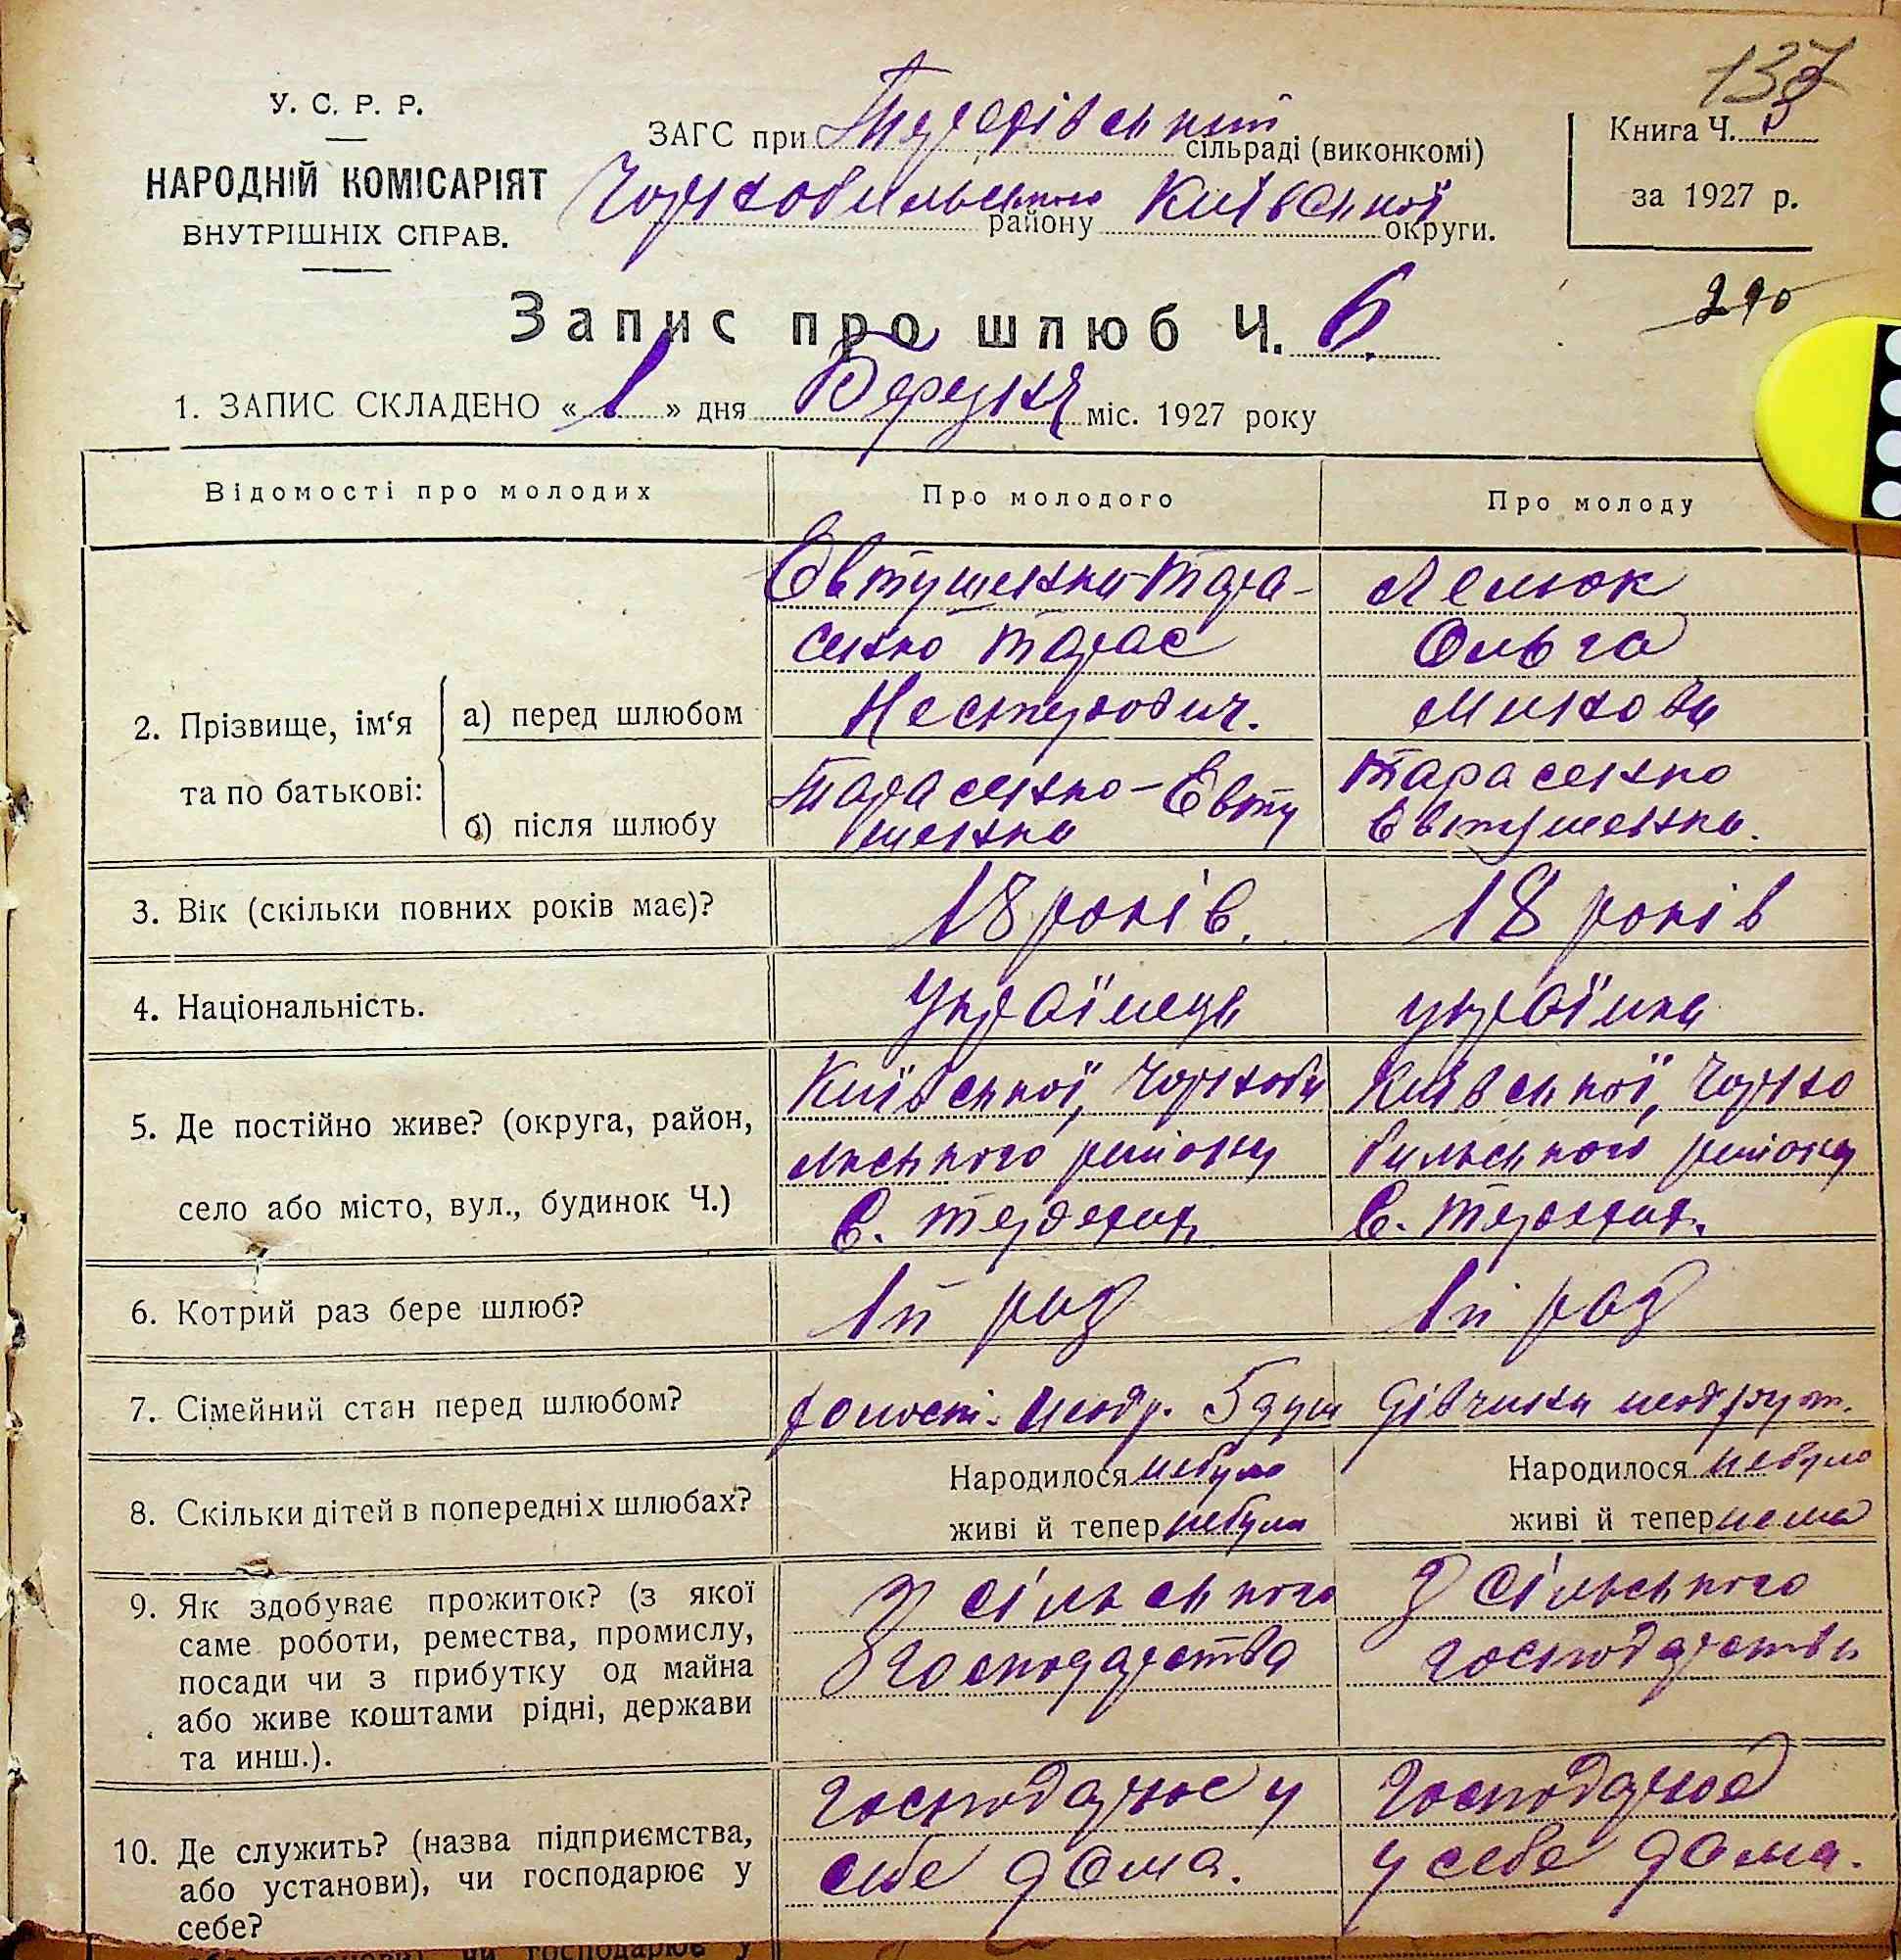 137
У. С. Р. Р.
НАРОДНІЙ КОМІСАРІЯТ
ВНУТРІШНІХ СПРАВ.
ЗАГС при сільраді (виконкомі)
Чорнобильського району Київської округи.
Книга Ч.
за 1927 р.
290
Запис про шлюб Ч. 6
1. ЗАПИС СКЛАДЕНО « 1 » дня Березня міс. 1927 року
Відомості про молодих
Про молодого
Про молоду
2. Прізвище, ім‘я
та по батькові:
а) перед шлюбом
Євтушенко-Тара-
сенко Тарас
Несторович.
Лелюк
Ольга
б) після шлюбу
Тарасенко-Євту
шенко
Тарасенко
Євтушенко.
3. Вік (скільки повних років має)?
18 років.
18 років
4. Національність.
Українець
українка
5. Де постійно живе? (округа, район,
село або місто, вул., будинок Ч.)
Київської, Чорноби
льського району
с.
Київської, Чорно
бильського району
с.
6. Котрий раз бере шлюб?
1й раз
1й раз
7. Сімейний стан перед шлюбом?
дівчина
8. Скільки дітей в попередніх шлюбах?
Народилося небуло
живі й тепер небуло
Народилося небуло
живі й тепер нема
9. Як здобуває прожиток? (з якої
саме роботи, ремества, промислу,
посади чи з прибутку од майна
або живе коштами рідні, держави
та инш.).
З сільського
господарства
З сільського
господарства
10. Де служить? (назва підприємства,
або установи), чи господарює у
себе?
господарює у
себе дома.
господарює
у себе дома.